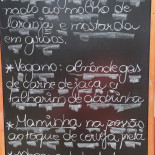 nado ao molho de
laranja e mostarda
em grãos.
* Vegano: almôndegas
de carne de jaca c/
talharim de abobrinha
* Maminha na pressão
ao toque de cerveja preta